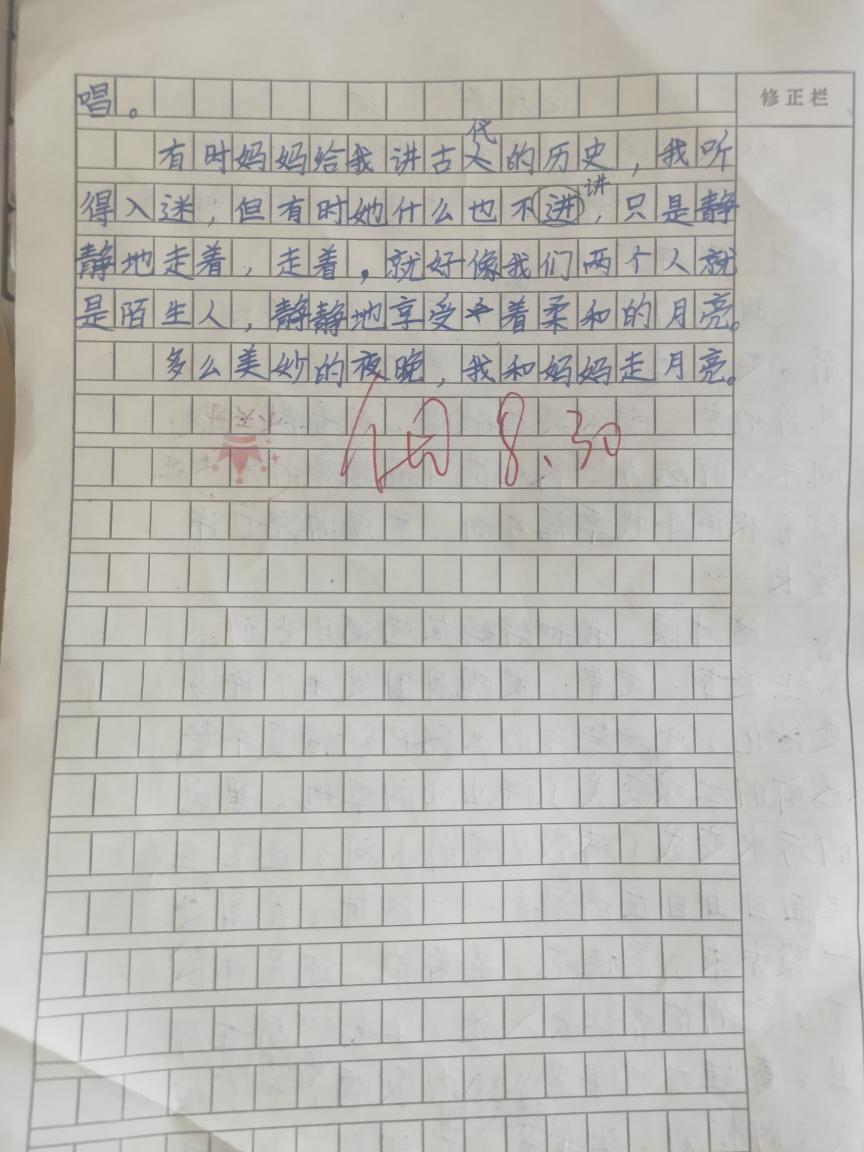 修正栏
唱。
有时妈妈给我讲古代的历史，我听
得入迷，但有时她什么也不讲，只是静
静地走着，走着，就好像我们两个人就
是陌生人，静静地享受着柔和的月亮。
多么美妙的夜晚，我和妈妈走月亮。
8.30